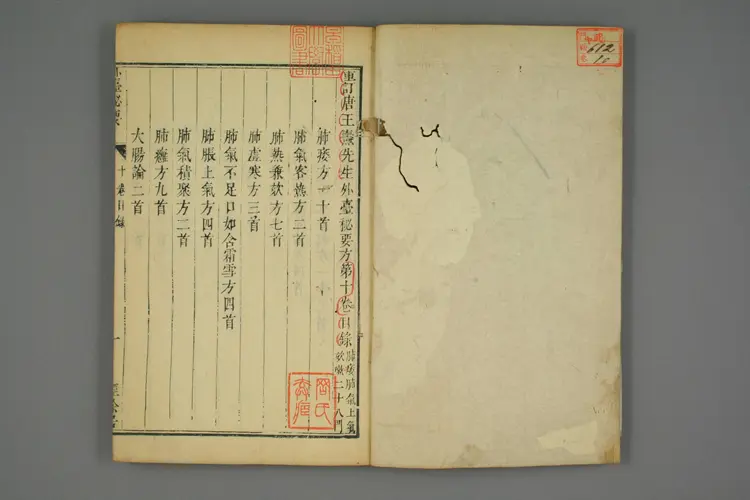 重訂唐王燾先生外臺秘要方第十卷目錄
肺痿肺氣上氣
欬嗽二十八門
肺痿方一十首
肺氣客熱方二首
肺熱兼欬方七首
肺虛寒方三首
肺氣不足口如含霜雪方四首
肺脹上氣方四首
肺氣積聚方二首
肺癰方九首
大腸論二首
外臺秘要
十卷目錄
一
612